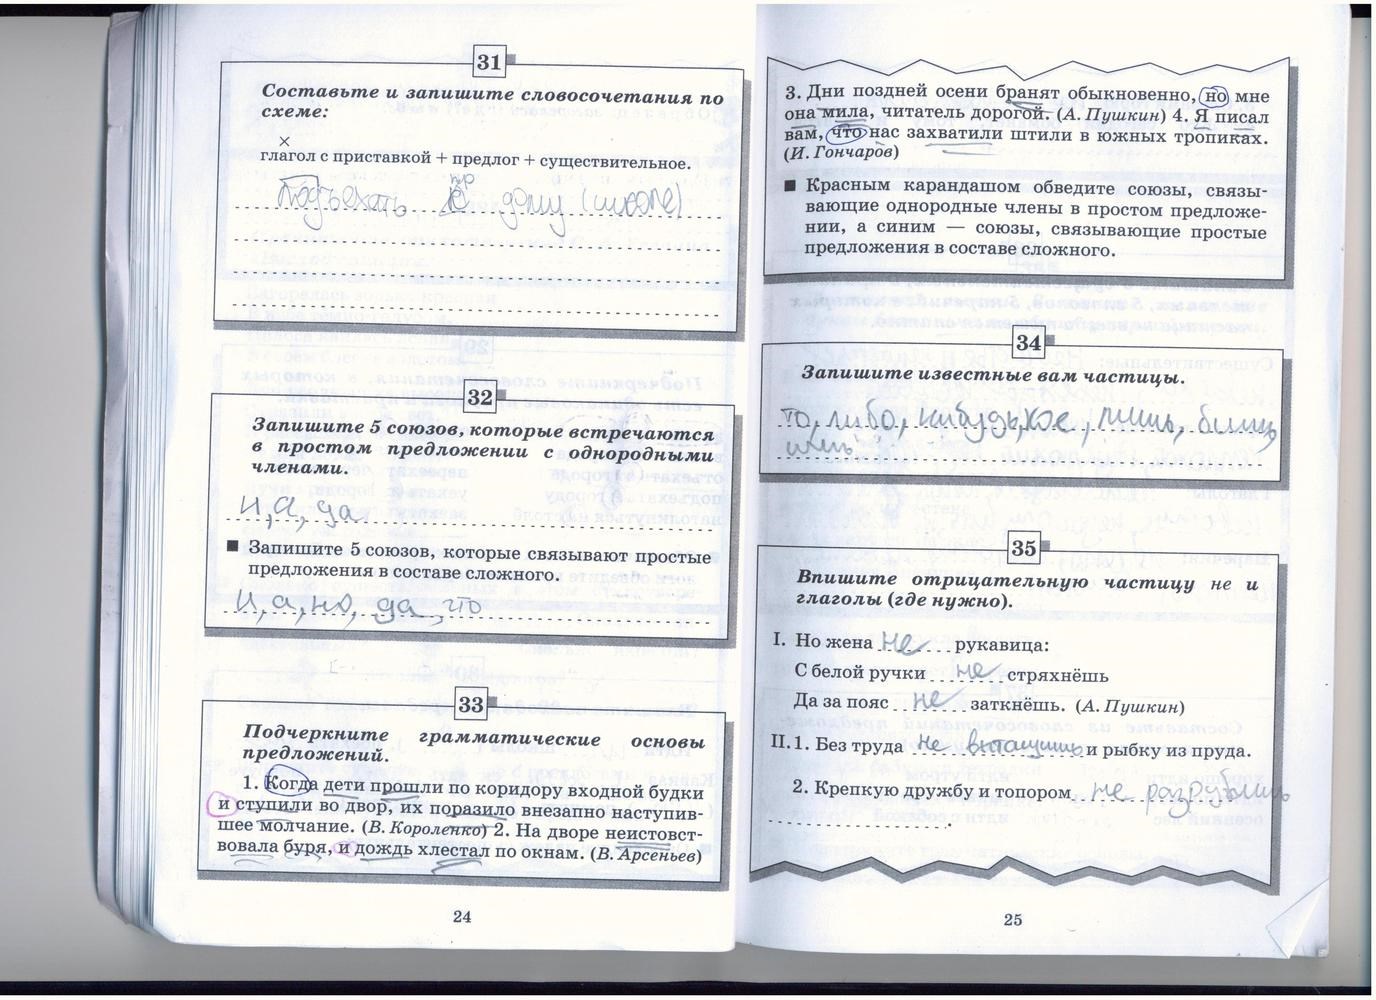 31
Составьте и запишите словосочетания по
схеме:
×
глагол с приставкой + предлог + существительное.
пр
Подъехать к дому (школе)
32
Запишите 5 союзов, которые встречаются
в простом предложении с однородными
членами.
И, а, да
■ Запишите 5 союзов, которые связывают простые
предложения в составе сложного.
И, а, но, да, что
33
Подчеркните грамматические основы
предложений.
1. Когда дети прошли по коридору входной будки
и ступили во двор, их поразило внезапно наступив-
шее молчание. (В. Короленко) 2. На дворе неистовст-
вовала буря, и дождь хлестал по окнам. (В. Арсеньев)
24
3. Дни поздней осени бранят обыкновенно, но мне
она мила, читатель дорогой. (А. Пушкин) 4. Я писал
вам, что нас захватили штили в южных тропиках.
(И. Гончаров)
■ Красным карандашом обведите союзы, связы-
вающие однородные члены в простом предложе-
нии, а синим — союзы, связывающие простые
предложения в составе сложного.
34
Запишите известные вам частицы.
то, либо, нибудь, кое, лишь,
35
Впишите отрицательную частицу не и
глаголы (где нужно).
I. Но жена не рукавица:
С белой ручки не стряхнёшь
Да за пояс не заткнёшь. (А. Пушкин)
II. 1. Без труда не вытащишь и рыбку из пруда.
2. Крепкую дружбу и топором не разрубишь
.
25